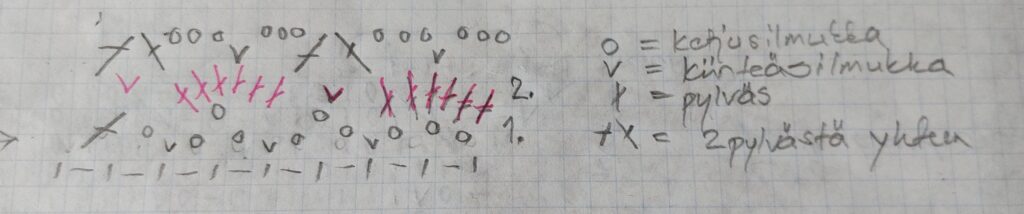 o = ketjusilmukka
v = kiinteäsilmukka
2.
= pylväs
1.
= 2 pylvästä yhteen